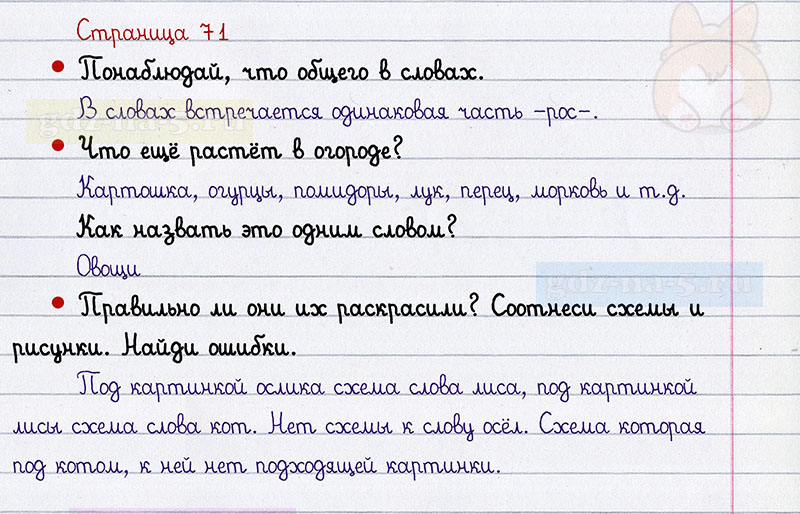 Страница 71
• Понаблюдай, что общего в словах.
В словах встречается одинаковая часть –рос–.
gdz-na-5.ru
• Что ещё растёт в огороде?
Картошка, огурцы, помидоры, лук, перец, морковь и т.д.
Как назвать это одним словом?
Овощи
gdz-na-5.ru
• Правильно ли они их раскрасили? Соотнеси схемы и
рисунки. Найди ошибки.
Под картинкой ослика схема слова лиса, под картинкой
лисы схема слова кот. Нет схемы к слову осёл. Схема которая
под котом, к ней нет подходящей картинки.